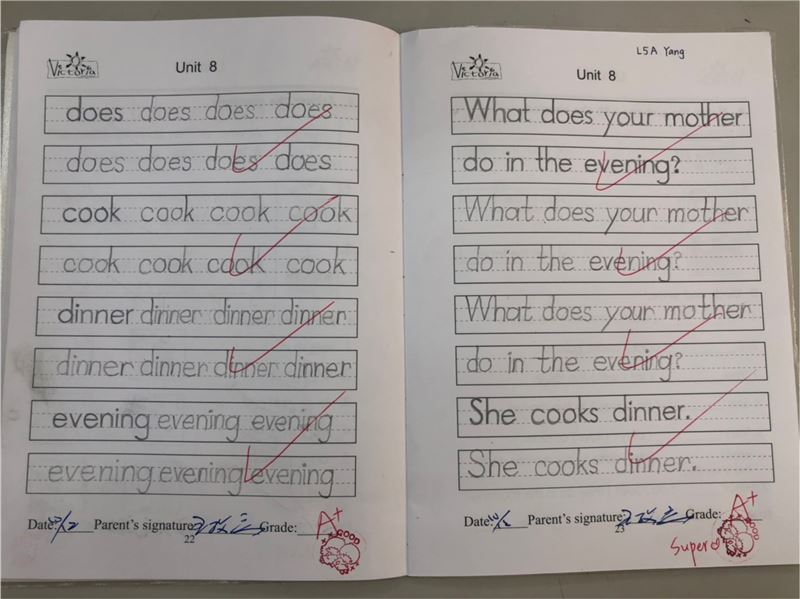 Victoria
Unit 8
does does does does
does does does does
cook cook cook cook
cook cook cook cook
dinner dinner dinner dinner
dinner dinner dinner dinner
evening evening evening
evening evening evening
Date: Parent's signature: Grade: A+
GOOD
22
L5A Yang
Victoria
Unit 8
What does your mother
do in the evening?
What does your mother
do in the evening?
What does your mother
do in the evening?
She cooks dinner.
She cooks dinner.
Date: Parent's signature: Grade: A+
GOOD
23
Super